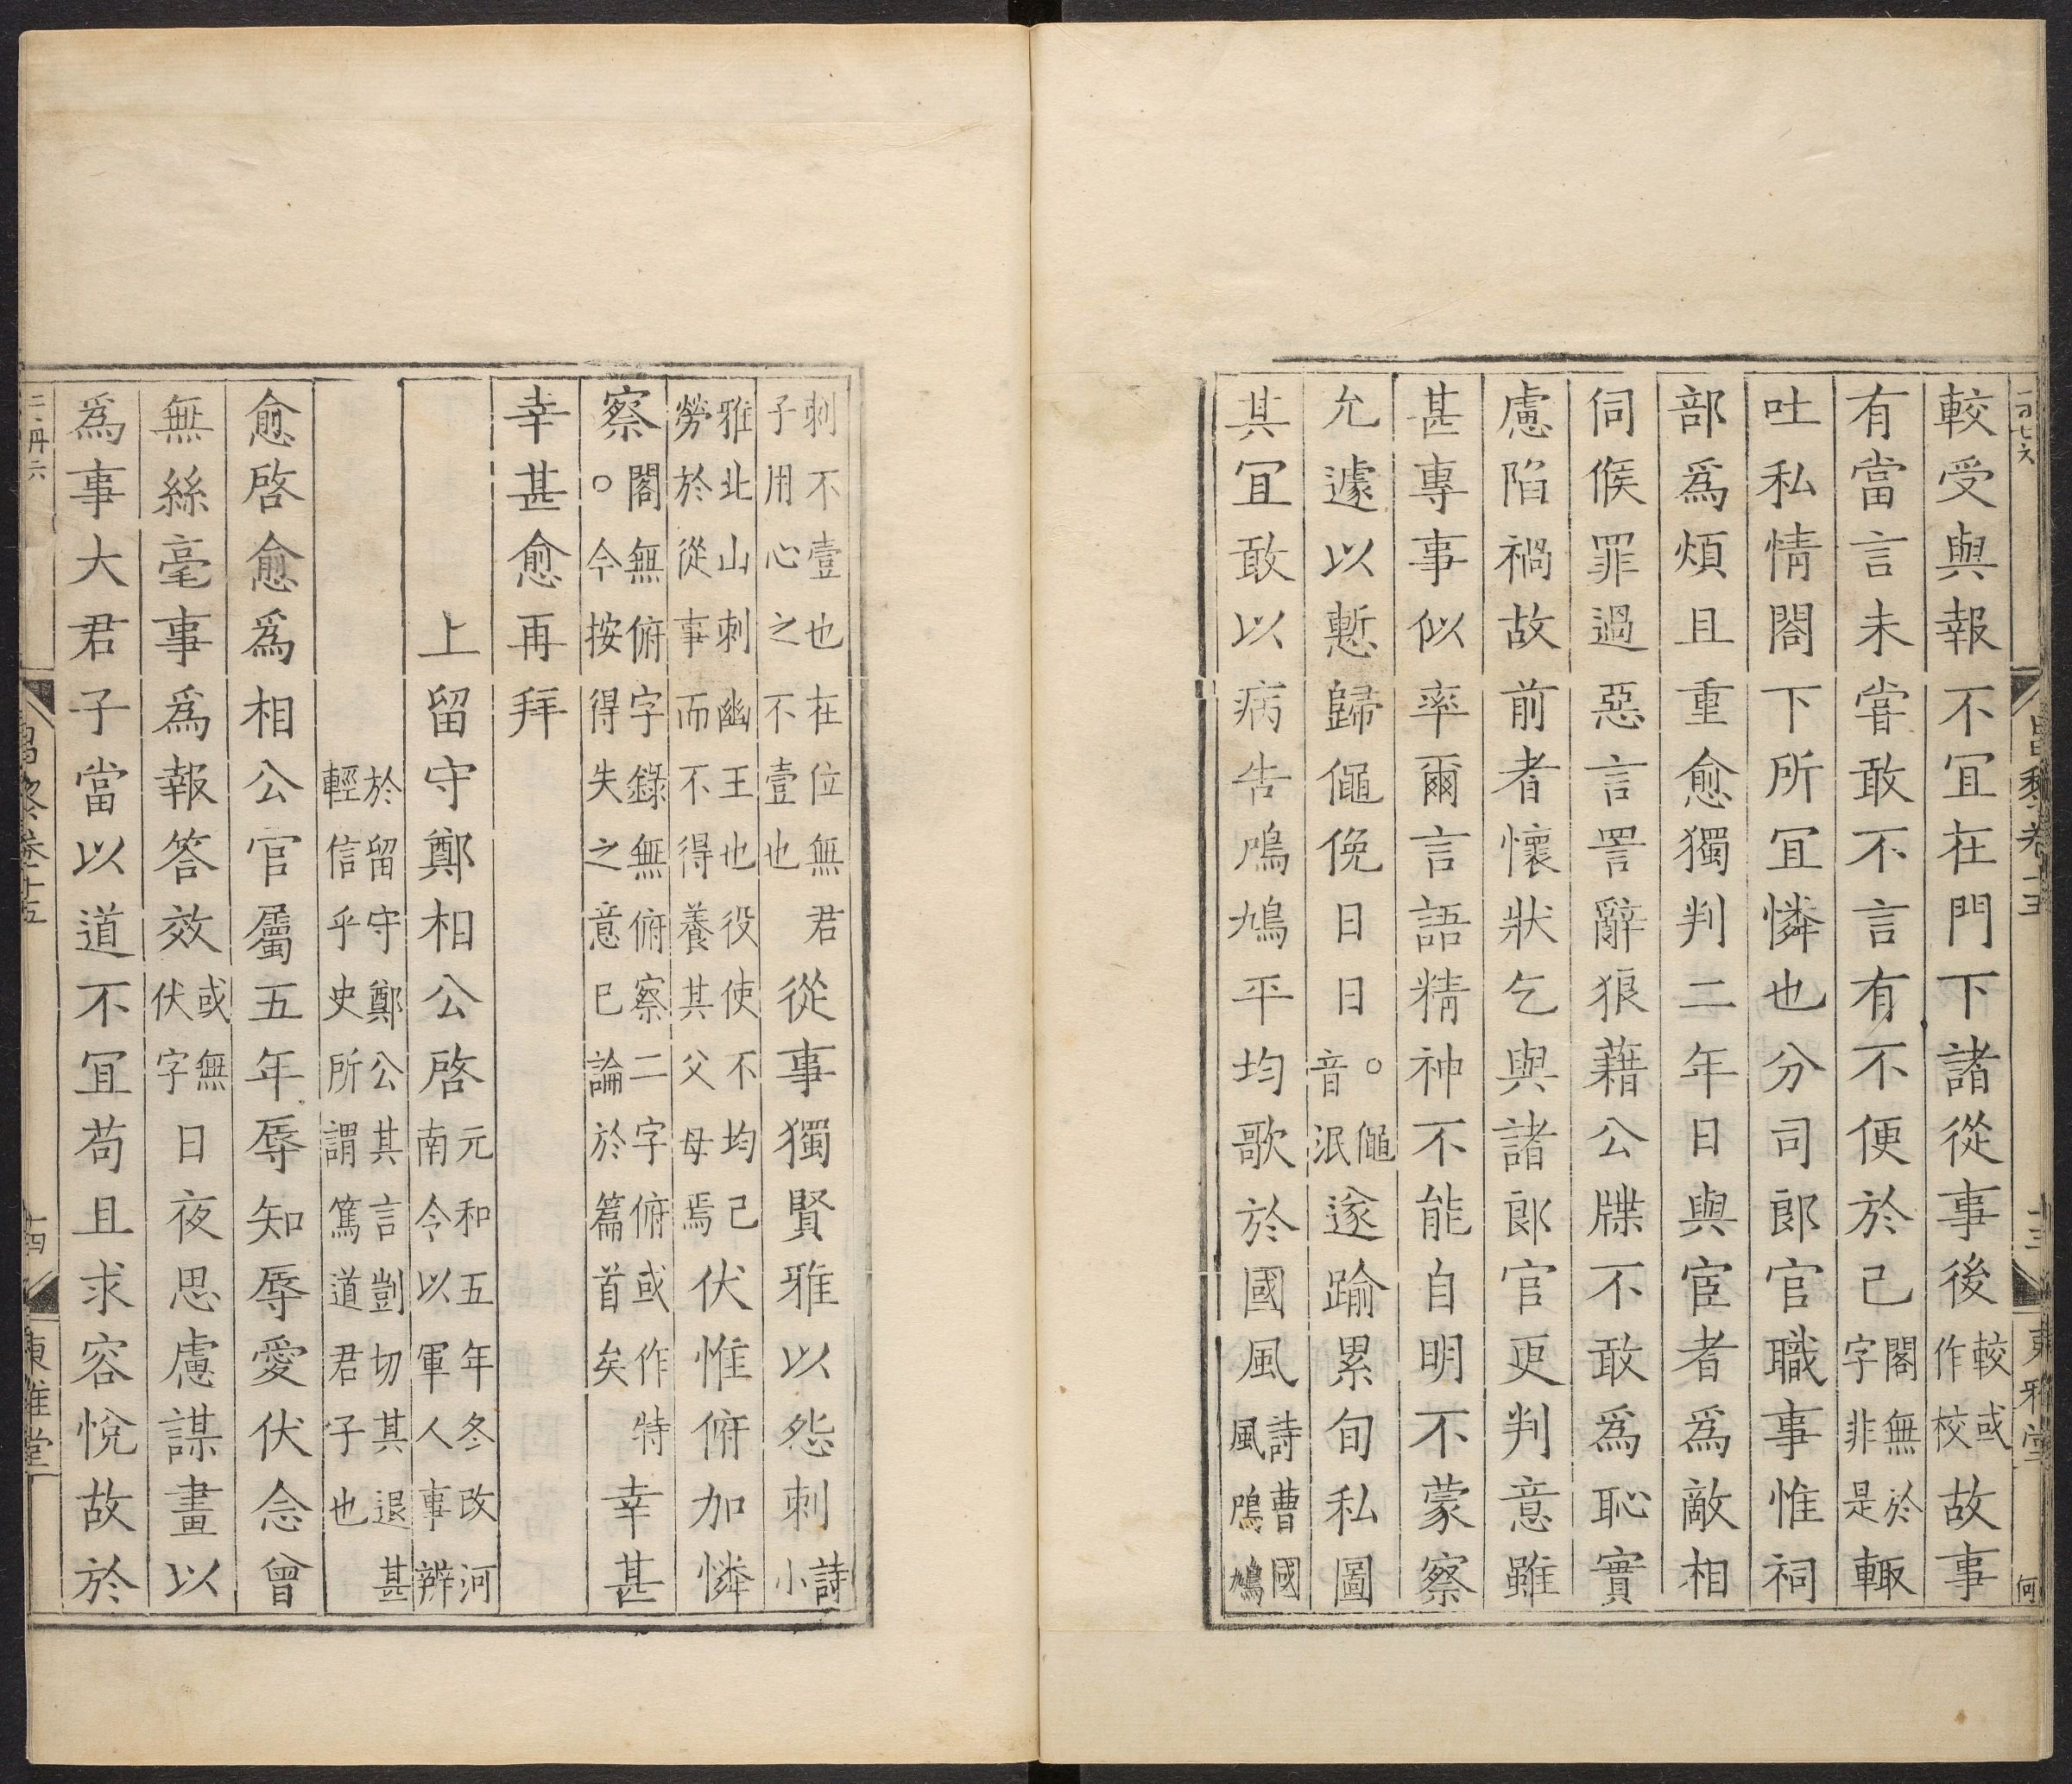 較受與報不宜在門下諸從事後較或作校故事
有當言未嘗敢不言有不便於己閣無於字非是輙
吐私情閤下所宜憐也分司郎官職事惟祠
部爲煩且重愈獨判二年日與宦者爲敵相
伺候罪過惡言詈辭狼藉公牒不敢爲恥實
慮陷禍故前者懷狀乞與諸郎官更判意雖
甚專事似率爾言語精神不能自明不蒙察
允遽以慙歸僶俛日日○僶音泯遂踰累旬私圖
其宜敢以病告鳲鳩平均歌於國風詩曹國風鳲鳩
刺不壹也在位無君子用心之不壹也從事獨賢雅以怨刺詩小
雅北山刺幽王也役使不均己勞於從事而不得養其父母焉伏惟俯加憐
察閣無俯字錄無俯察二字俯或作特○今按得失之意已論於篇首矣幸甚
幸甚愈再拜
上留守鄭相公啓元和五年冬改河南令以軍人事辨
於留守鄭公其言剴切其退甚輕信乎史所謂篤道君子也
愈啓愈爲相公官屬五年辱知辱愛伏念曾
無絲毫事爲報答效或無伏字日夜思慮謀畫以
爲事大君子當以道不宜苟且求容悅故於
昌黎卷十五
十三
東雅堂
何
昌黎卷十五
十四
東雅堂